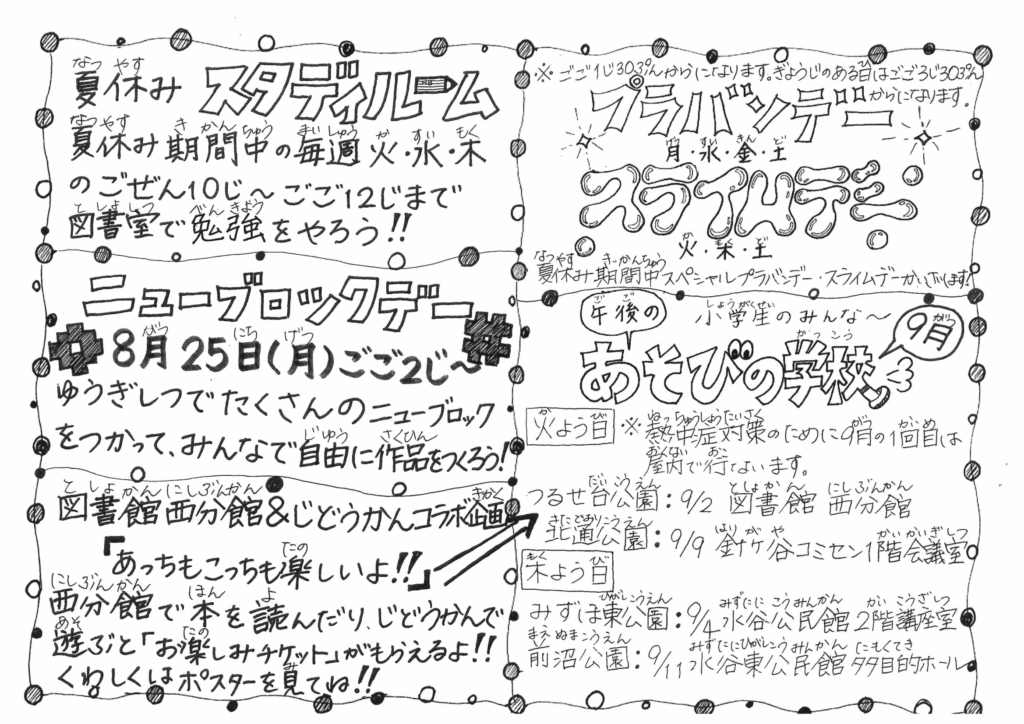 夏休み スタディルーム
夏休み期間中の毎週火・水・木
のごぜん10じ～ごご12じまで
図書室で勉強をやろう!!
ニューブロックデー
8月25日(月)ごご2じ～
ゆうぎしつでたくさんのニューブロック
をつかって、みんなで自由に作品をつくろう!
図書館西分館&じどうかんコラボ企画
「あっちもこっちも楽しいよ!!」
西分館で本を読んだり、じどうかんで
遊ぶと「お楽しみチケット」がもらえるよ!!
くわしくはポスターを見てね!!
※ごご1じ30ぷんからになります。ぎょうじのある日はごご3じ30ぷん
からになります。
プラバンデー
月・水・金・土
スライムデー
火・木・土
夏休み期間中スペシャルプラバンデー・スライムデーがございます!
午後の 小学生のみんな～
あそびの学校 9月
火よう日 ※熱中症対策のために9月の1回目は
屋内で行ないます。
つるせ台公園:9/2 図書館 西分館
北通公園:9/9 針ヶ谷コミセン1階会議室
木よう日
みずほ東公園:9/4 水谷公民館2階講座室
前沼公園:9/11 水谷東公民館 多目的ホール